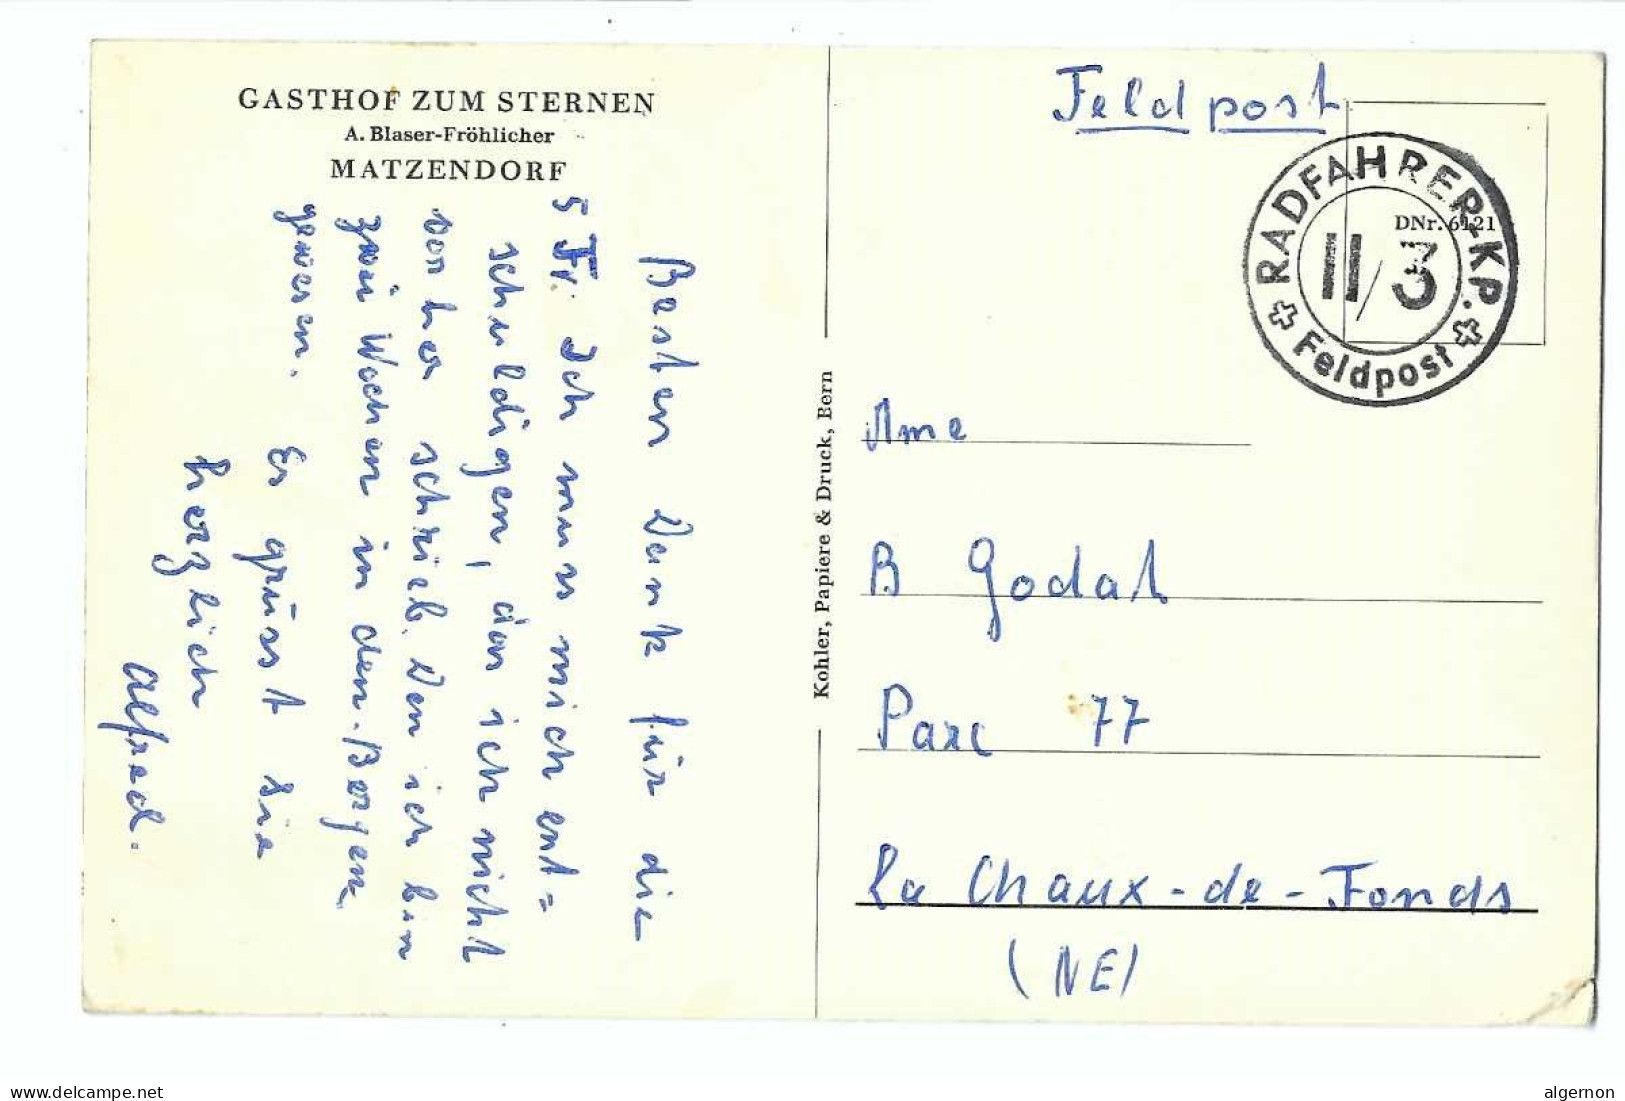 GASTHOF ZUM STERNEN
A. Blaser-Fröhlicher
MATZENDORF
Besten Dank für die
5 Fr. Ich muss mich ent=
schuldigen, das ich nicht
vorher schrieb. Den ich bin
zwei Wochen in den Bergen
gewesen. Es grüsst Sie
herzlich
Alfred.
Kohler, Papiere & Druck, Bern
Feldpost
DNr. 6121
RADFAHRER-KP.
II/3
Feldpost
Mme
B Godat
Parc 77
La Chaux-de-Fonds
(NE)
delcampe.net
algernon